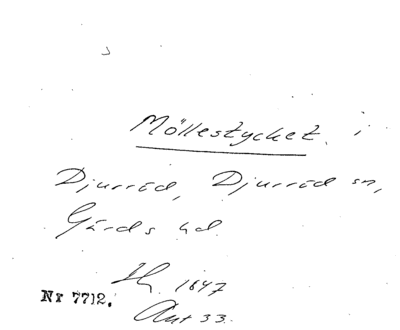 Möllestycket. i
Djurröd, Djurröd sn,
Gärds hd.
1647
Nr 7712.
Ant 33.